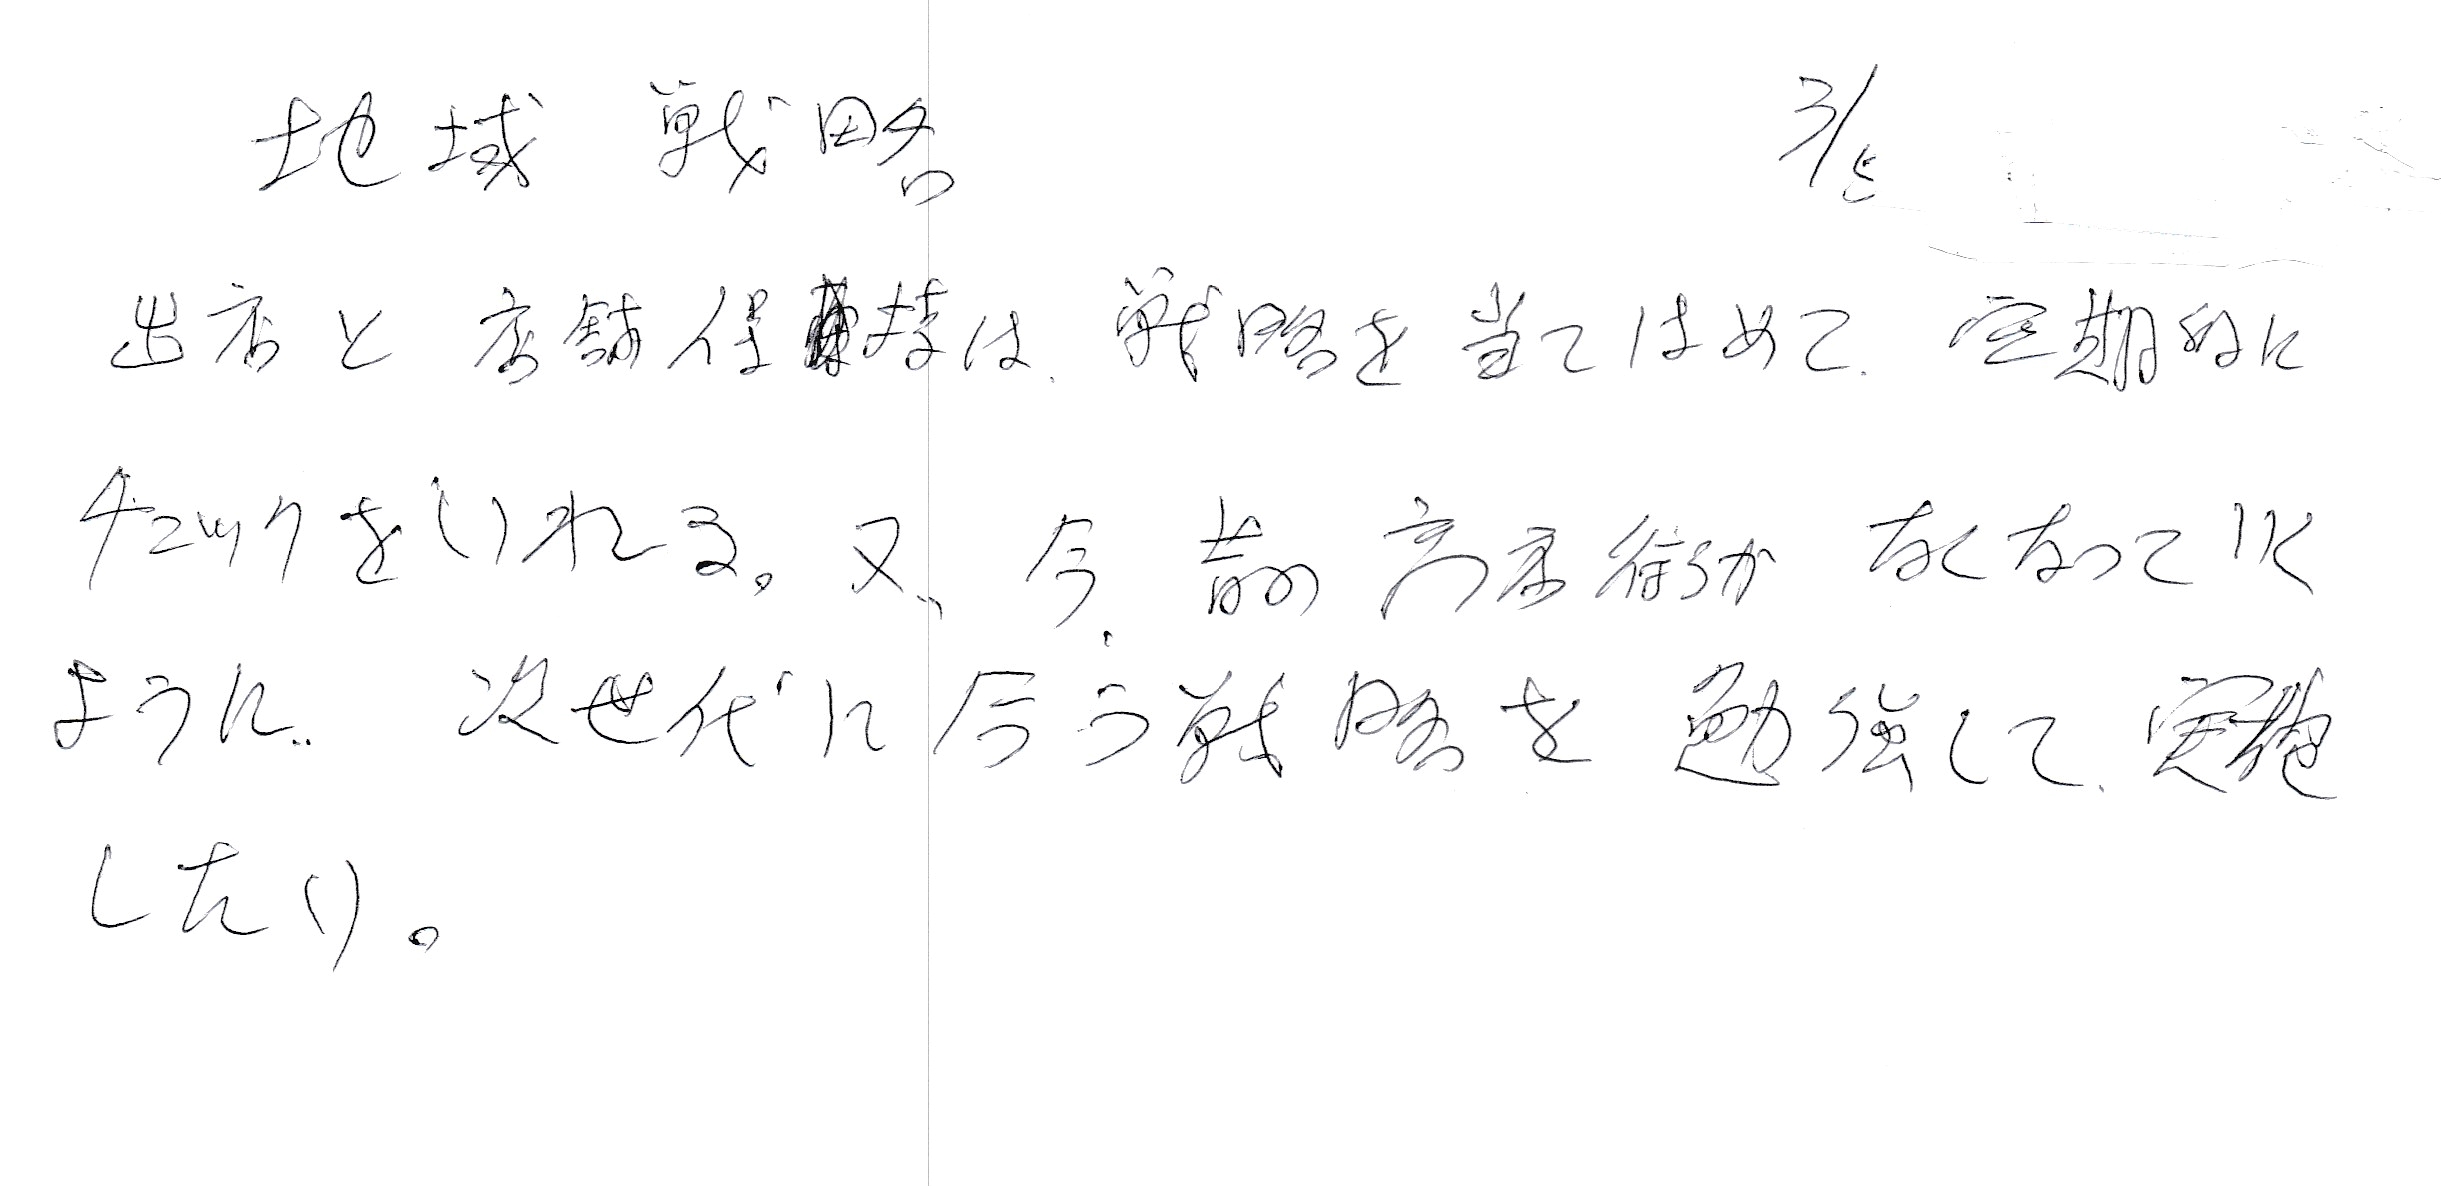 地域 戦略 3/5
出店と 店舗保持は、戦略を当てはめて、定期的に
チェックをいれる。又、今、昔の商店街が なくなっていく
ように、次世代に合う戦略を 勉強して、実施
したい。